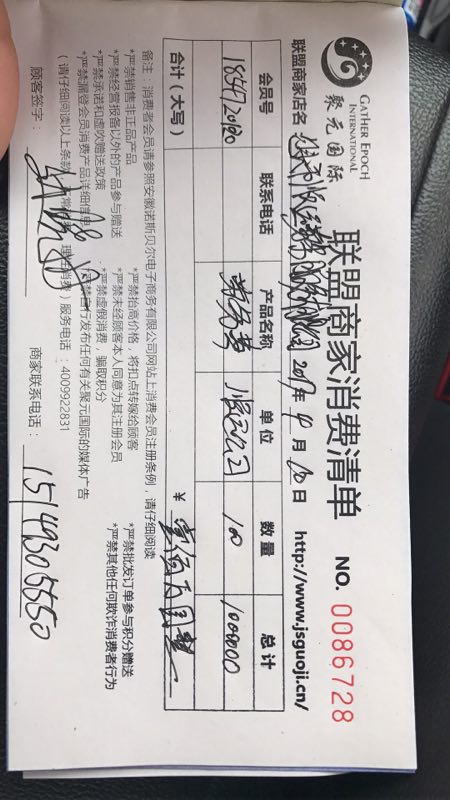 GATHER EPOCH
INTERNATIONAL
聚元国际
联盟商家消费清单
NO. 0086728
联盟商家店名
2017年 月10日
http://www.jsguoji.cn/
会员号 联系电话 产品名称 单位 数量 总计
100 1000000
合计（大写） ￥
备注：消费者会员请参照安徽诺斯贝尔电子商务有限公司网站上消费会员注册条例，请仔细阅读
*严禁销售非正品产品 *严禁抬高价格，将扣点转嫁给顾客 *严禁批发订单参与积分赠送
*严禁经营报备以外的产品参与赠送 *严禁未经顾客本人同意为其注册会员 *严禁其他任何欺诈消费者行为
*严禁承诺和虚吹赠送政策 *严禁虚假消费，骗取积分
*严禁漏登会员消费产品详细信息 *严禁自行发布任何有关聚元国际的媒体广告
（请仔细阅读以上条款 理性消费）服务电话：4009922831
顾客签字： 商家联系电话：15149305550